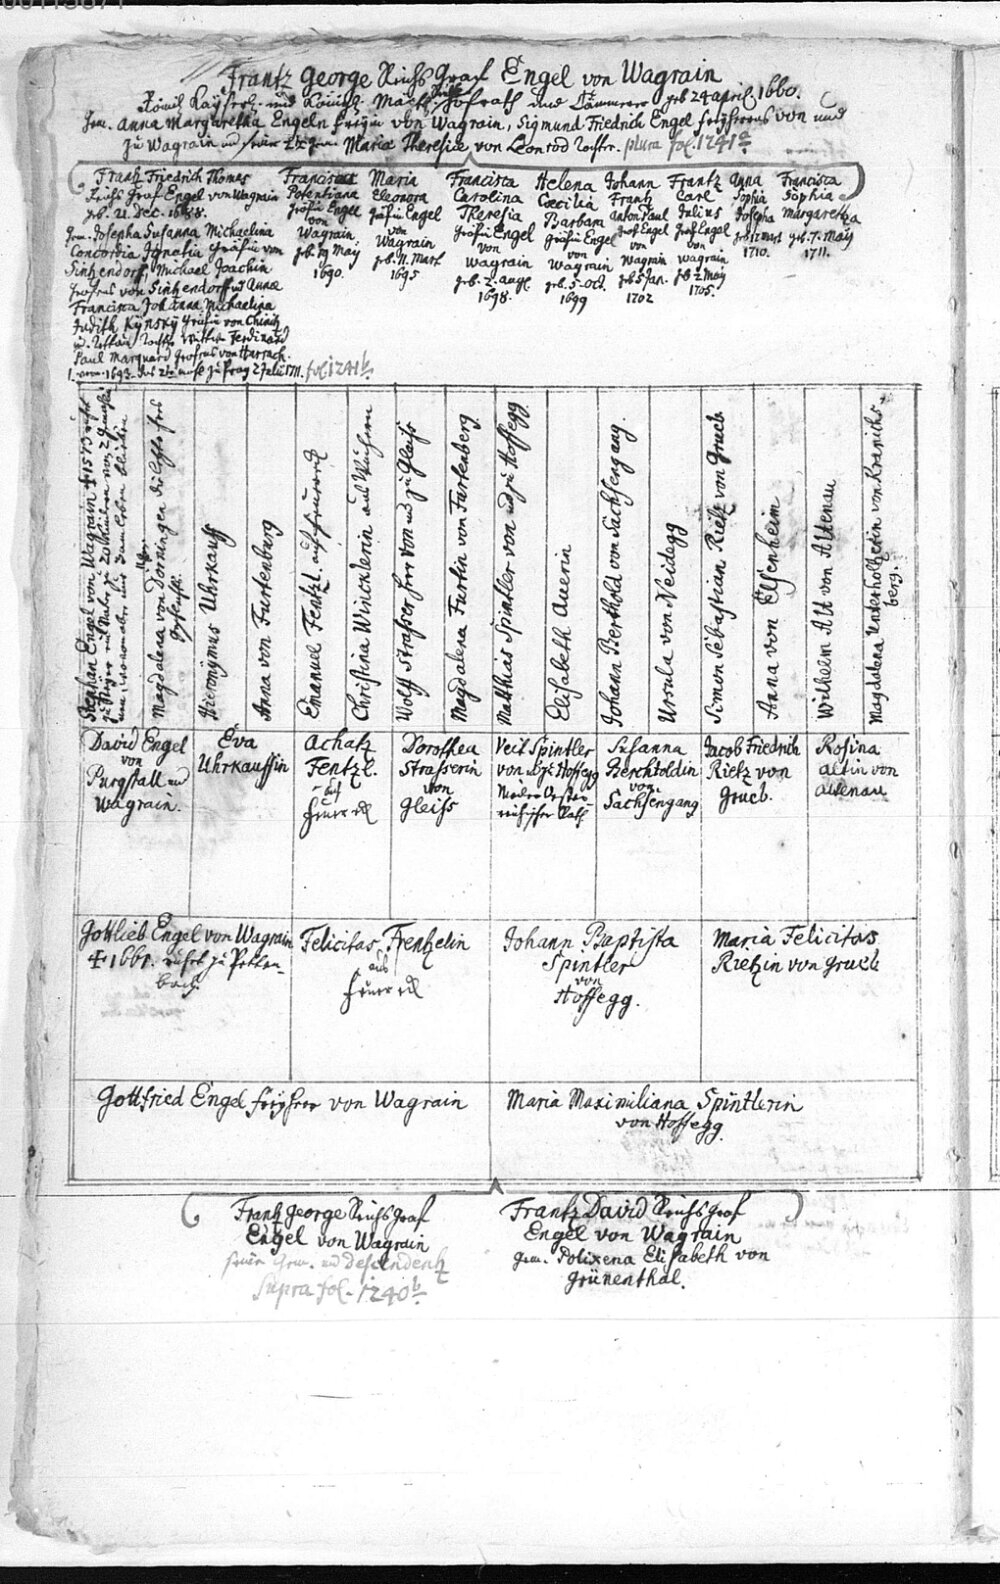 Frantz George Reichs Graf Engel von Wagrain
Römisch Kayserl. und Königl. Mäytt. Hofrath und Cämmerer geb 24 april. 1660.
Gem. Anna Margaretha Engeln freyin von Wagrain, Sigmund Friedrich Engel freyherrns von und
zu Wagrain und seiner Gem. Maria Theresiae von Leonrod Tochtr. plura fol. 1241a
Frantz Friedrich Thomas
Reichs Graf Engel von Wagrain
geb. 21. Dec. 1688.
Gem. Josepha Susanna Michaelina
Concordia Ignatia Gräfin von
Sintzendorf, Michael Joachim
Grafens von Sintzendorf und Annae
Francisca Johanna Michaelina
Judith Kynsky Gräfin von Chinitz
und Tettau Tochtr Wittwe Ferdinand
Paul Marquard Grafens von Harrach.
fol 1241b
Francisca
Potentiana
Gräfin Engel
von
Wagrain
geb. 19 May
1690.
Maria
Eleonora
Gräfin Engel
von
Wagrain
geb. 11. Mart
1695
Francisca
Carolina
Theresia
Gräfin Engel
von
Wagrain
geb. 2. aug.
1698.
Helena
Caecilia
Barbara
Gräfin Engel
von
Wagrain
geb. 5. Oct.
1699
Johann
Frantz
Anton Paul
Graf Engel
von
Wagrain
geb 5 Jan.
1702
Frantz
Carl
Julius
Graf Engel
von
Wagrain
geb 2 May
1705.
Anna
Sophia
Josepha
geb 17 Mart
1710.
Francisca
Sophia
Margaretha
geb. 7. May
1711.
Stephan Engel von Wagrain † 1573
Magdalena von Dörningen
Hieronymus Uhrkauff
Anna von Furtenburg
Emanuel Fentzl. auf Feuereck
Christina Wincklerin aus
Wolff Strasser Herr von und zu Gleiss
Magdalena Furtin von Furtenberg
Matthias Spintler von und zu Hoffegg
Elisabeth Auerin
Johann Berthold von Sachsengang
Ursula von Neidegg
Simon Sebastian Rietz von Grueb
Anna von Elssenheim
Wilhelm Alt von Altenau
Magdalena Unterholtzerin von Kranichs-
berg.
David Engel
von
Purgstall und
Wagrain.
Eva
Uhrkauffin
Achatz
Fentzl.
auf
Feuereck
Dorothea
Strasserin
von
Gleiss
Veit Spintler
von und zu Hoffegg
Nieder Oester-
reichischer Rath
Susanna
Berchtoldin
von
Sachsengang
Jacob Friedrich
Rietz von
Grueb.
Rosina
Altin von
Altenau
Gottlieb Engel von Wagrain
† 1661. ruhet zu Petten-
bach
Felicitas Frentzelin
aus
Feuereck
Johann Baptista
Spintler
von
Hoffegg.
Maria Felicitas
Rietzin von Grueb
Gottfried Engel freyherr von Wagrain
Maria Maximiliana Spintlerin
von Hoffegg.
Frantz George Reichs Graf
Engel von Wagrain
seine Gem. und Descendentz
Supra fol. 1240b
Frantz David Reichs Graf
Engel von Wagrain
Gem. Polixena Elisabeth von
Grünenthal.